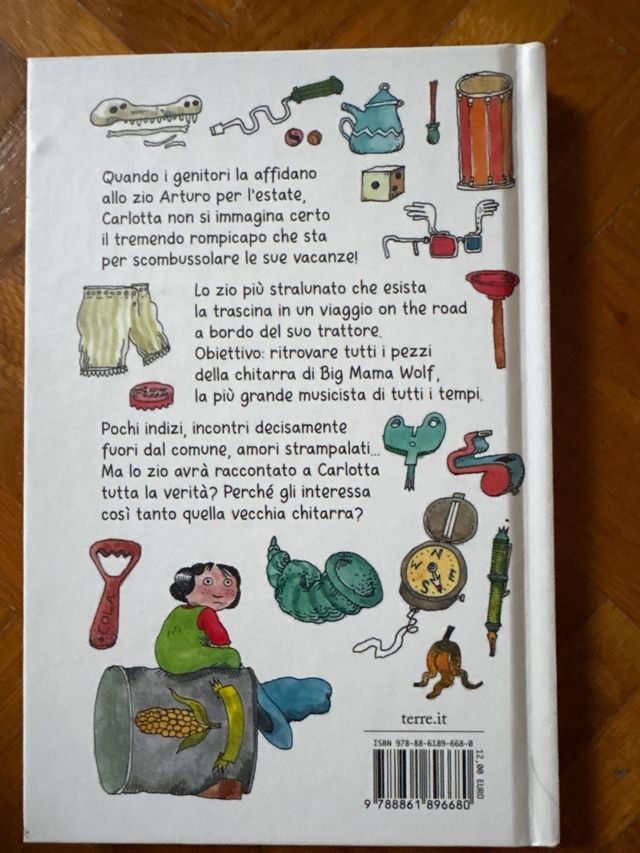 Quando i genitori la affidano
allo zio Arturo per l'estate,
Carlotta non si immagina certo
il tremendo rompicapo che sta
per scombussolare le sue vacanze!
Lo zio più stralunato che esista
la trascina in un viaggio on the road
a bordo del suo trattore.
Obiettivo: ritrovare tutti i pezzi
della chitarra di Big Mama Wolf,
la più grande musicista di tutti i tempi.
Pochi indizi, incontri decisamente
fuori dal comune, amori strampalati...
Ma lo zio avrà raccontato a Carlotta
tutta la verità? Perché gli interessa
così tanto quella vecchia chitarra?
COLA
N
E
S
W
terre.it
ISBN 978-88-6189-668-0
12,00 EURO
9 788861 896680